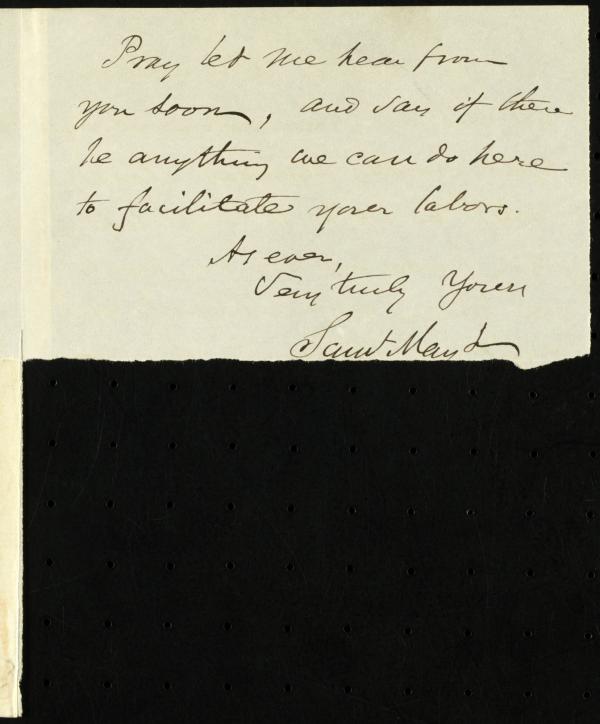 Pray let me hear from
you soon, and say if there
be anything we can do here
to facilitate your labors.
As ever,
Very truly Yours
Saml May Jr